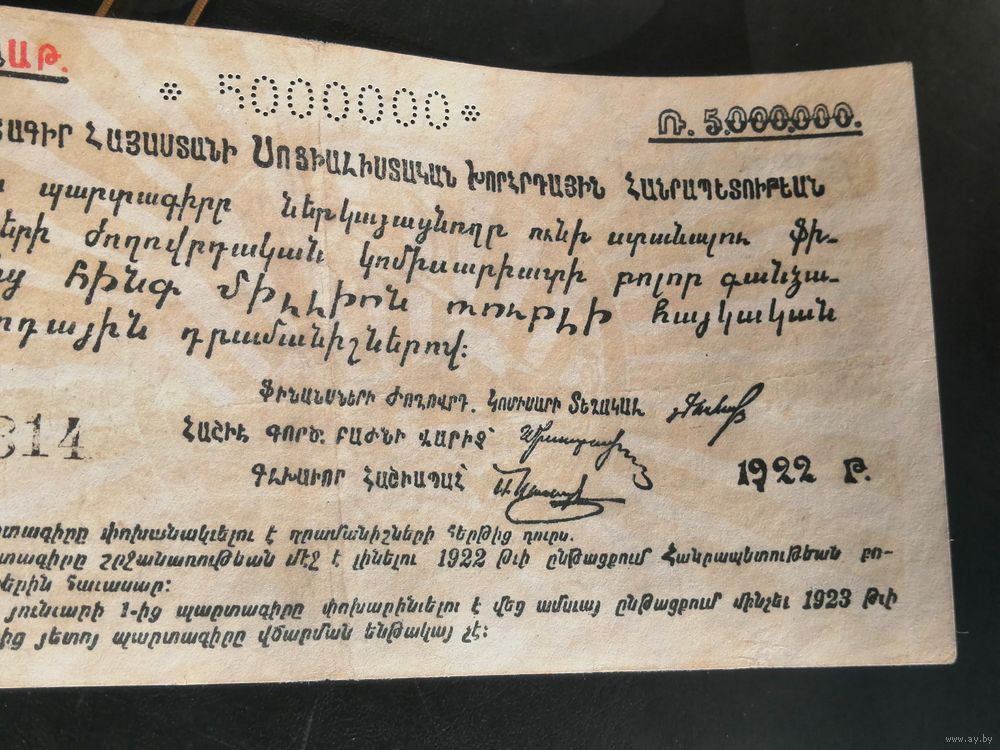 ԱԹ.
* 5000000 *
Ռ. 5.000.000.
ԱԳԻՐ ՀԱՅԱՍՏԱՆԻ ՍՈՑԻԱԼԻՍՏԱԿԱՆ ԽՈՐՀՐԴԱՅԻՆ ՀԱՆՐԱՊԵՏՈՒԹԵԱՆ
պարտագիրը ներկայացնողը ունի ստանալու ֆի-
ների ժողովրդական կոմիսարիատի բոլոր գանձա-
ից հինգ միլլիոն ռուբլի հայկական
րդային դրամանիշներով:
ՖԻՆԱՆՍՆԵՐԻ ԺՈՂՈՎՐԴ. ԿՈՄԻՍԱՐԻ ՏԵՂԱԿԱԼ
ՀԱՇԻՒ. ԳՈՐԾ. ԲԱԺՆԻ ՎԱՐԻՉ՝
ԳԼԽԱՒՈՐ ՀԱՇՒԱՊԱՀ՝
314
1922 Թ.
րտագիրը փոխանակւելու է դրամանիշների հերթից դուրս.
տագիրը շրջանառութեան մէջ է լինելու 1922 թւի ընթացքում Հանրապետութեան բո-
երին հաւասար:
յունւարի 1-ից պարտագիրը փոխարինւելու է վեց ամսւայ ընթացքում մինչեւ 1923 թւի
ից յետոյ պարտագիրը վճարման ենթակայ չէ:
www.ay.by